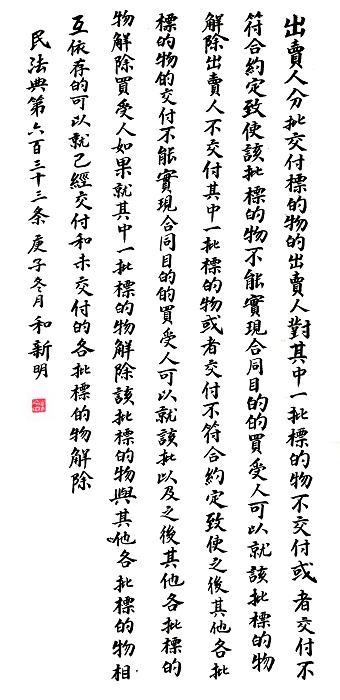 出賣人分批交付標的物的出賣人對其中一批標的物不交付或者交付不
符合約定致使該批標的物不能實現合同目的的買受人可以就該批標的物
解除出賣人不交付其中一批標的物或者交付不符合約定致使之後其他各批
標的物的交付不能實現合同目的的買受人可以就該批以及之後其他各批標的
物解除買受人如果就其中一批標的物解除該批標的物與其他各批標的物相
互依存的可以就已經交付和未交付的各批標的物解除
民法典第六百三十三条 庚子冬月 和新明